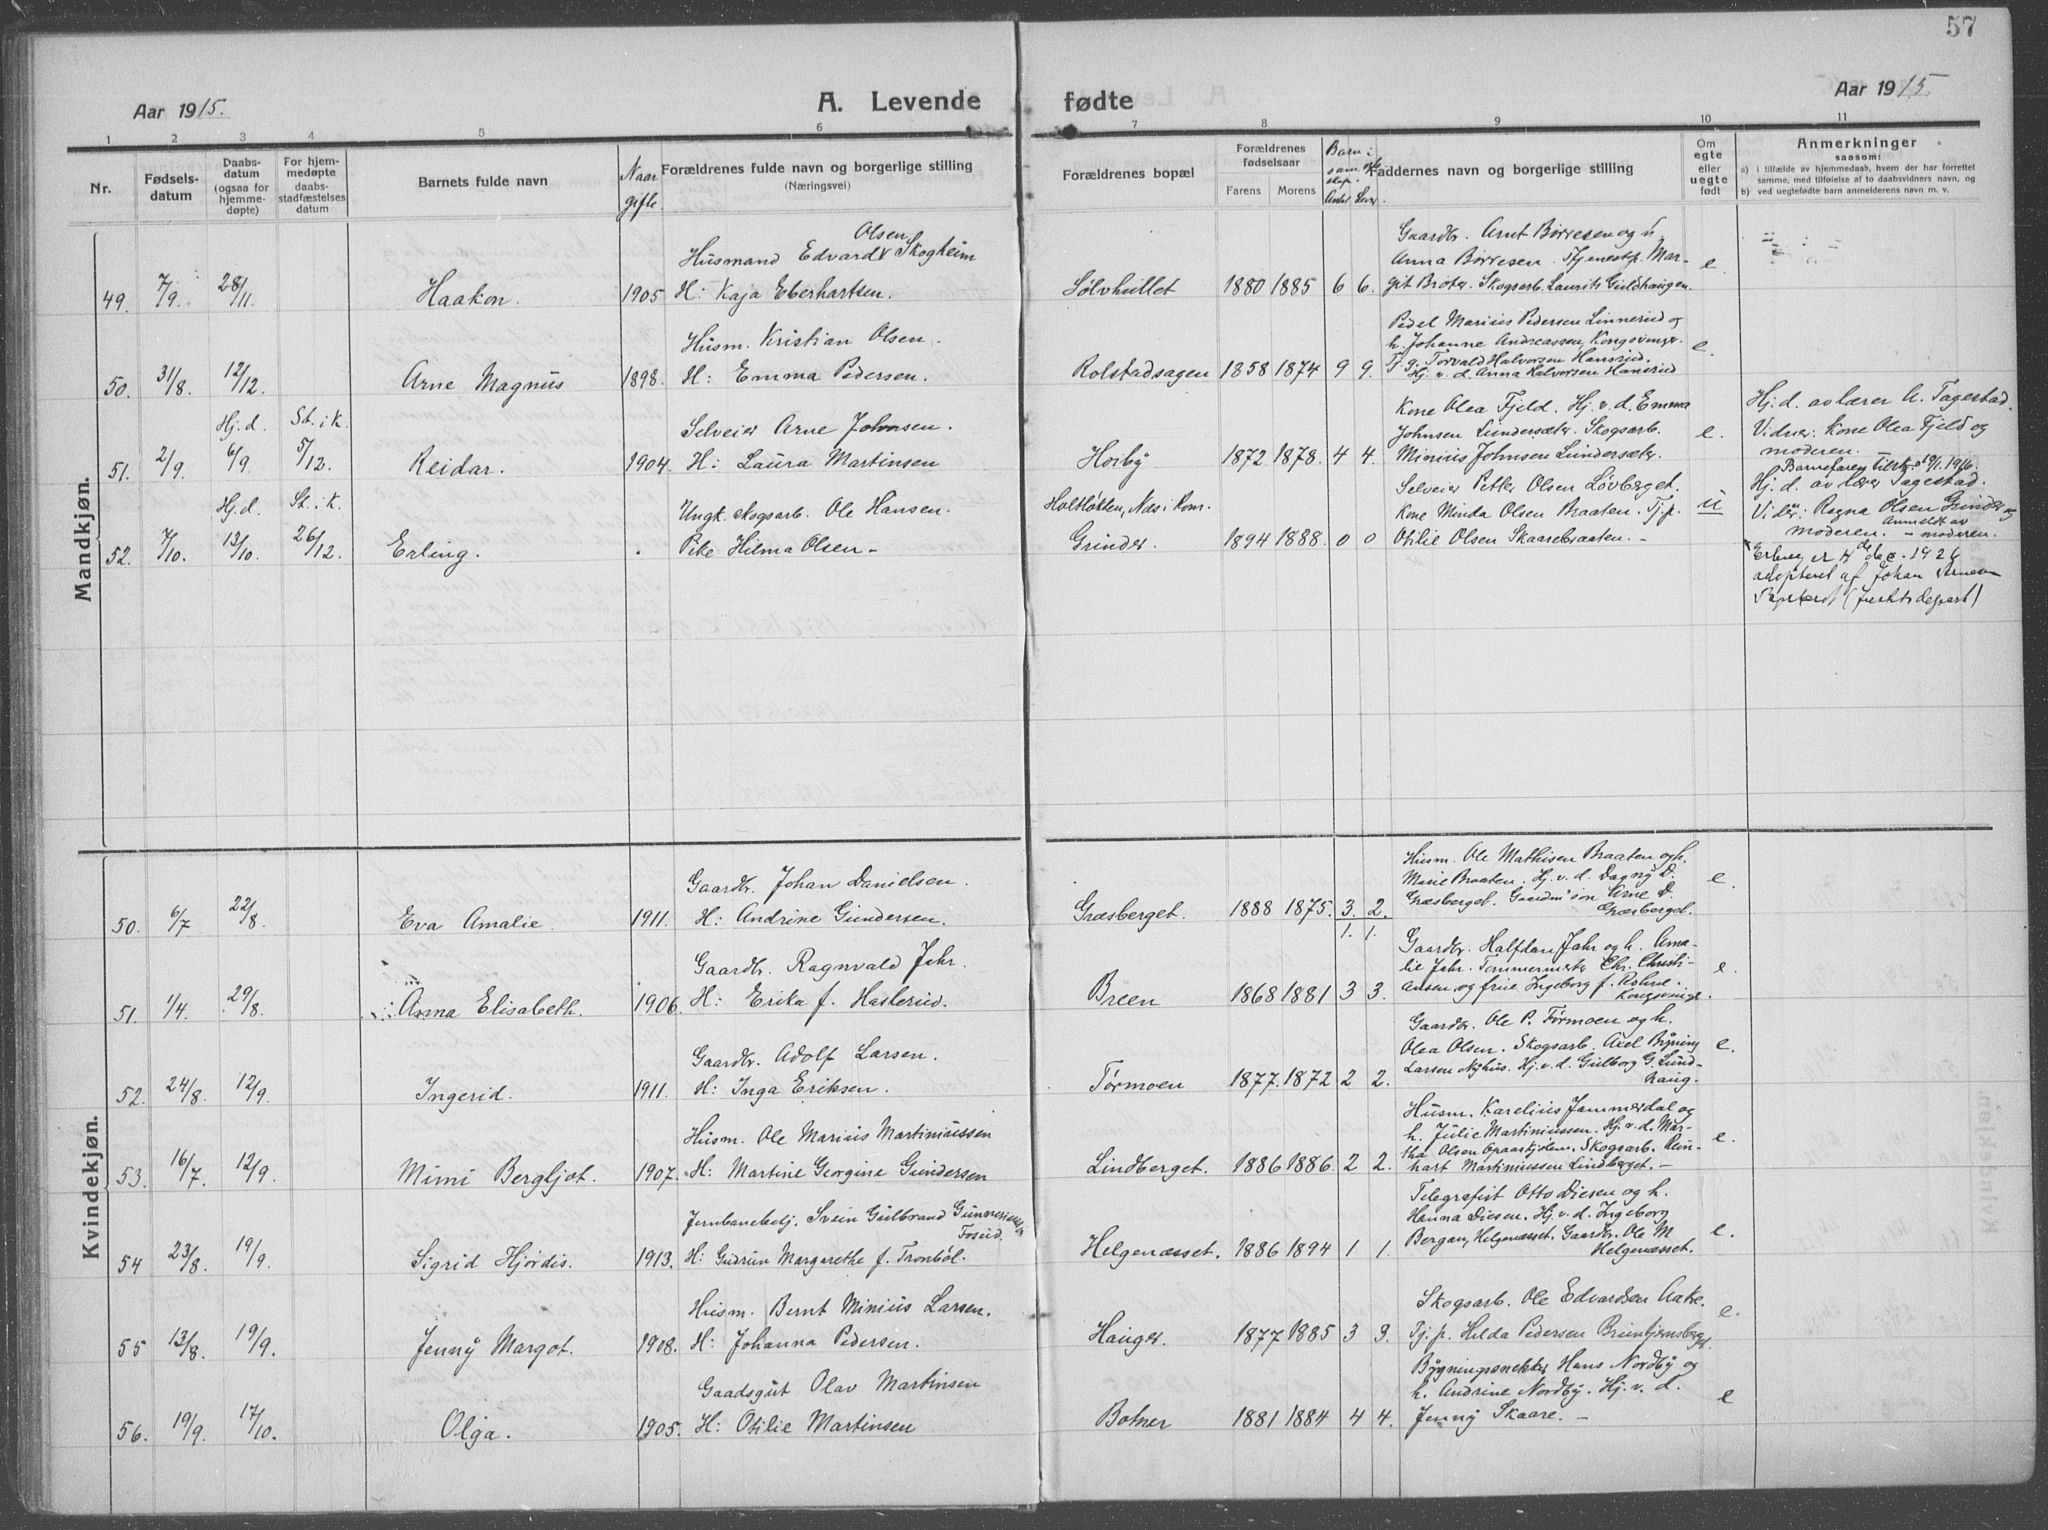 57
Aar 1915. A. Levende fødte Aar 1915.
1 2 3 4 5 6 7 8 9 10 11
Nr. Fødselsdatum Daabsdatum (ogsaa for hjemmedøpte) For hjemmedøpte daabsstadfæstelses datum Barnets fulde navn Naar gifte Forældrenes fulde navn og borgerlige stilling (Næringsvei) Forældrenes bopæl Forældrenes fødselsaar Farens Morens Faddernes navn og borgerlige stilling Om egte eller uegte født Anmerkninger
saasom:
a) i tilfælde av hjemmedaab, hvem der har forrettet samme, med tilføielse af to daabsvidners navn, og
b) ved uegtefødte barn anmelderens navn m. v.
Mandkjøn.
Olsen
Husmand Edvard Skogheim
49. 7/9. 28/11. Haakon. 1905 H: Kaja Eberhartsen. Sølvhullet 1880 1885 6 6. e.
Gaardbr. Arnt Børresen og
Anna Børresen. Tjenestp. Mar-
git Broter. Skogsarb. Laurits Guldhaugen.
Husm. Kristian Olsen.
50. 31/8. 12/12. Arne Magnus 1898. H: Emma Pedersen. Rolstadsagen 1858 1874 9 9. e.
Pedel Marius Pedersen Linnerud og
h. Johanne Andreassen, Kongsvinger.
T. g. Torvald Halvorsen Hansrud.
Hj. v. d. Anna Halvorsen Hansrud
Hj.d. St. i K. Selveier Arne Johnsen.
51. 2/9. 6/9. 5/12. Reidar. 1904. H: Laura Martinsen Hoiby 1872 1878. 4 4. e.
Kone Olea Fjeld. Hj. v. d. Emma
Johnsen Lundersæter. Skogsarb.
Minius Johnsen Lundersæter.
Hj. d. av lærer A. Tagestad.
Vidner: Kone Olea Fjeld og
moderen. —
Hj.d. St. i K. Ungk. skogsarb. Ole Hansen. Holtløkken, Nes i Rom.
52. 7/10. 13/10. 26/12. Erling. . Pike Hilma Olsen — Grinder. 1894 1888. 0 0 ü
Selveier Petter Olsen Løvberget.
Kone Minda Olsen Braaten. Tj. p.
Otilie Olsen Skaarebraaten. —
Barnefaren tilskr. 19/1. 1916.
Hj. d. av lærer Tagestad.
Vidn: Ragna Olsen Grinder og
moderen. — Anmeldt av moderen.
Erling er 4de dec. 1926
adopteret af Johan Arnesen
Kvindekjøn.
Gaardbr. Johan Danielsen.
50. 6/7 22/8. Eva Amalie. 1911. H: Andrine Gundersen. Græsberget. 1888 1875. 3. 2. e.
1. 1.
Husm. Ole Mathisen Braaten og h.
Marie Braaten. Hj. v. d. Dagny D.
Græsberget. Gaardm. søn Arne D.
Græsberget.
Gaardbr. Ragnvald Jahr.
51. 1/4. 29/8. Anna Elisabeth. 1906. H: Erika f. Hasterud. Breen 1868 1881 3 3. e.
Gaardbr. Halfdan Jahr og h. Ama-
lie Jahr. Tømmermester Chr. Christi-
ansen og frue Ingeborg f. Rohne.
Kongsvinger.
Gaardbr. Adolf Larsen.
52. 24/8. 12/9. Ingerid. 1911. H: Inga Eriksen. Tørmoen 1877. 1872 2 2. e.
Gaardbr. Ole P. Tørmoen og h.
Olea Olsen. Skogsarb. Axel Bryning
Larsen Nyhus. Hj. v. d. Gulborg G. Lund-
haug.
Husm. Ole Marius Martiniussen
53. 16/7. 12/9. Mimi Bergljot. 1907. H: Martine Georgine Gundersen Lindberget. 1886 1886. 2 2. e.
Husm. Karelius Jammerdal og
h. Julie Martiniussen. Hj. v. d. Mar-
tha Olsen Opaastjølen. Skogsarb. Rein-
hart Martiniussen Lindberget. —
Jernbanebetj. Svein Gulbrand Gunneriussen
Fosud.
54 23/8. 19/9. Sigrid Hjørdis. 1913. H: Gudrun Margarethe f. Tronbøl. Helgenæsset. 1886 1894 1 1. e.
Telegrafist Otto Diesen og h.
Hanna Diesen. Hj. v. d. Ingeborg
Bergan, Helgenæsset. Gaardbr. Ole M
Helgenæsset.
Husm. Bernt Minius Larsen.
55 13/8. 19/9. Jenny Margot. 1908. H: Johanna Pedersen. Hauger. 1877 1885 3 3. e.
Skogsarb. Ole Edvardsen Aatre.
Tj. p. Helda Pedersen Bruntjernsberget.
Gaadsgut Olav Martinsen
56. 19/9. 17/10. Olga. 1905. H: Otilie Martinsen Botner 1881 1884 4 4. e
Bygningssnekker Hans Nordby og
h. Andrine Nordby. Hj. v. d.
Jenny Skaare. —